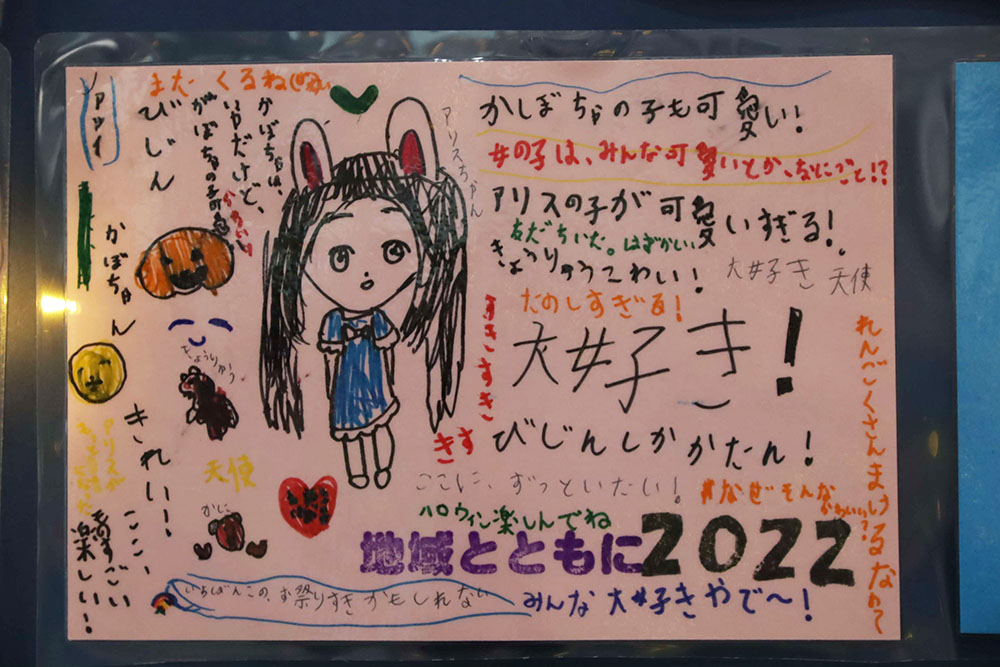 またくるね
びじん
かぼちゃは、
いやだけど、
がぼちゃの子可愛
アリスちゃん
かしぼちゃの子も可愛い!
女の子は、みんな可愛いとか、なにごと!?
アリスの子が可愛いすぎる!
友だちいた。はずかしい
きょうりゅうこわい!
大好き 天使
たのしすぎる!
大好き!
すきすきすき
びじんしかかたん!
ここに、ずっといたい!
#なぜそんな
かわいい?
れんごくさんまけるなめて
かぼちゃん
きょうりゅう
天使
かに
きれい!
ここ、
すごい
楽しい!
ハロウィン楽しんでね
地域とともに2022
いちばんこの、お祭りすきかもしれない
みんな大好きやで〜!